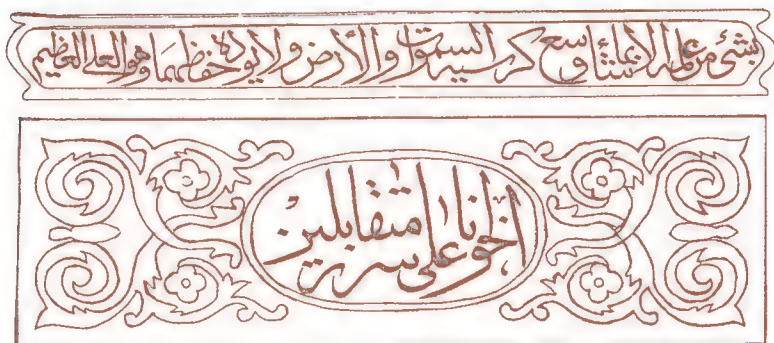 بشئ من علمه الا بما شاء وسع كرسيه السموات والأرض ولا يؤده حفظهما وهو العلي العظيم
اخوانا على سرر متقابلين